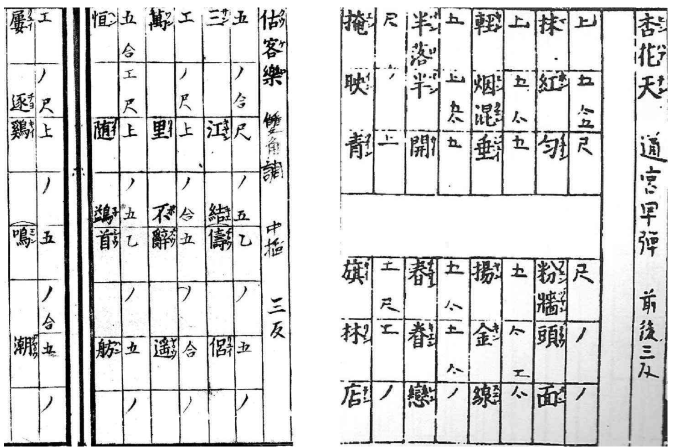 杏花天 道宮早彈 前後三反
上五合五尺尺ノノ
抹紅匀粉牆頭面
上五六五五六工六
輕烟混垂揚金線
上上五六五五六五六ノ
半落半開春眷戀
尺ノ上工尺工ノ
掩映青旗林店
估客樂 雙角調 中指 三反
五ノ合尺ノ五乙ノ五ノ
三江結儔侶
工ノ尺上ノ合五ノ合ノ
萬里不辭遥
五合工尺上ノ五乙ノ五ノ
恒随鷁首舫
工ノ尺上ノ五ノ合五ノ
屢逐鷄鳴潮